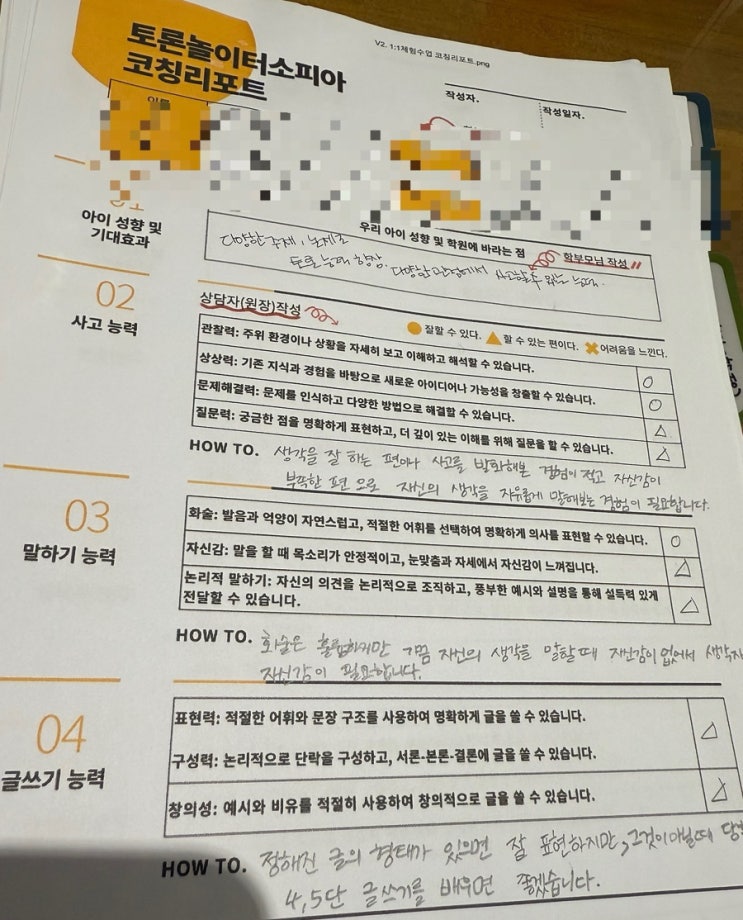 V2. 1:1체험수업 코칭리포트.png
토론놀이터소피아
코칭리포트
작성자.
작성일자.
아이 성향 및
기대효과
우리 아이 성향 및 학원에 바라는 점
학부모님 작성
다양한 주제, 논제로
토론 능력 향상. 다양한 관점에서 사고할 수 있는 능력.
02
사고 능력
상담자(원장)작성
잘할 수 있다. 할 수 있는 편이다. 어려움을 느낀다.
관찰력: 주위 환경이나 상황을 자세히 보고 이해하고 해석할 수 있습니다.
상상력: 기존 지식과 경험을 바탕으로 새로운 아이디어나 가능성을 창출할 수 있습니다.
문제해결력: 문제를 인식하고 다양한 방법으로 해결할 수 있습니다.
질문력: 궁금한 점을 명확하게 표현하고, 더 깊이 있는 이해를 위해 질문을 할 수 있습니다.
HOW TO. 생각을 잘 하는 편이나 사고를 발화해본 경험이 적고 자신감이
부족한 편으로 자신의 생각을 자유롭게 말해보는 경험이 필요합니다.
03
말하기 능력
화술: 발음과 억양이 자연스럽고, 적절한 어휘를 선택하여 명확하게 의사를 표현할 수 있습니다.
자신감: 말을 할 때 목소리가 안정적이고, 눈맞춤과 자세에서 자신감이 느껴집니다.
논리적 말하기: 자신의 의견을 논리적으로 조직하고, 풍부한 예시와 설명을 통해 설득력 있게
전달할 수 있습니다.
HOW TO. 화술은 훌륭하지만 가끔 자신의 생각을 말할 때 자신감이 없어서
자신감이 필요합니다.
04
글쓰기 능력
표현력: 적절한 어휘와 문장 구조를 사용하여 명확하게 글을 쓸 수 있습니다.
구성력: 논리적으로 단락을 구성하고, 서론-본론-결론에 글을 쓸 수 있습니다.
창의성: 예시와 비유를 적절히 사용하여 창의적으로 글을 쓸 수 있습니다.
HOW TO. 정해진 글의 형태가 있으면 잘 표현하지만, 그것이 아닐 때
4,5단 글쓰기를 배우면 좋겠습니다.